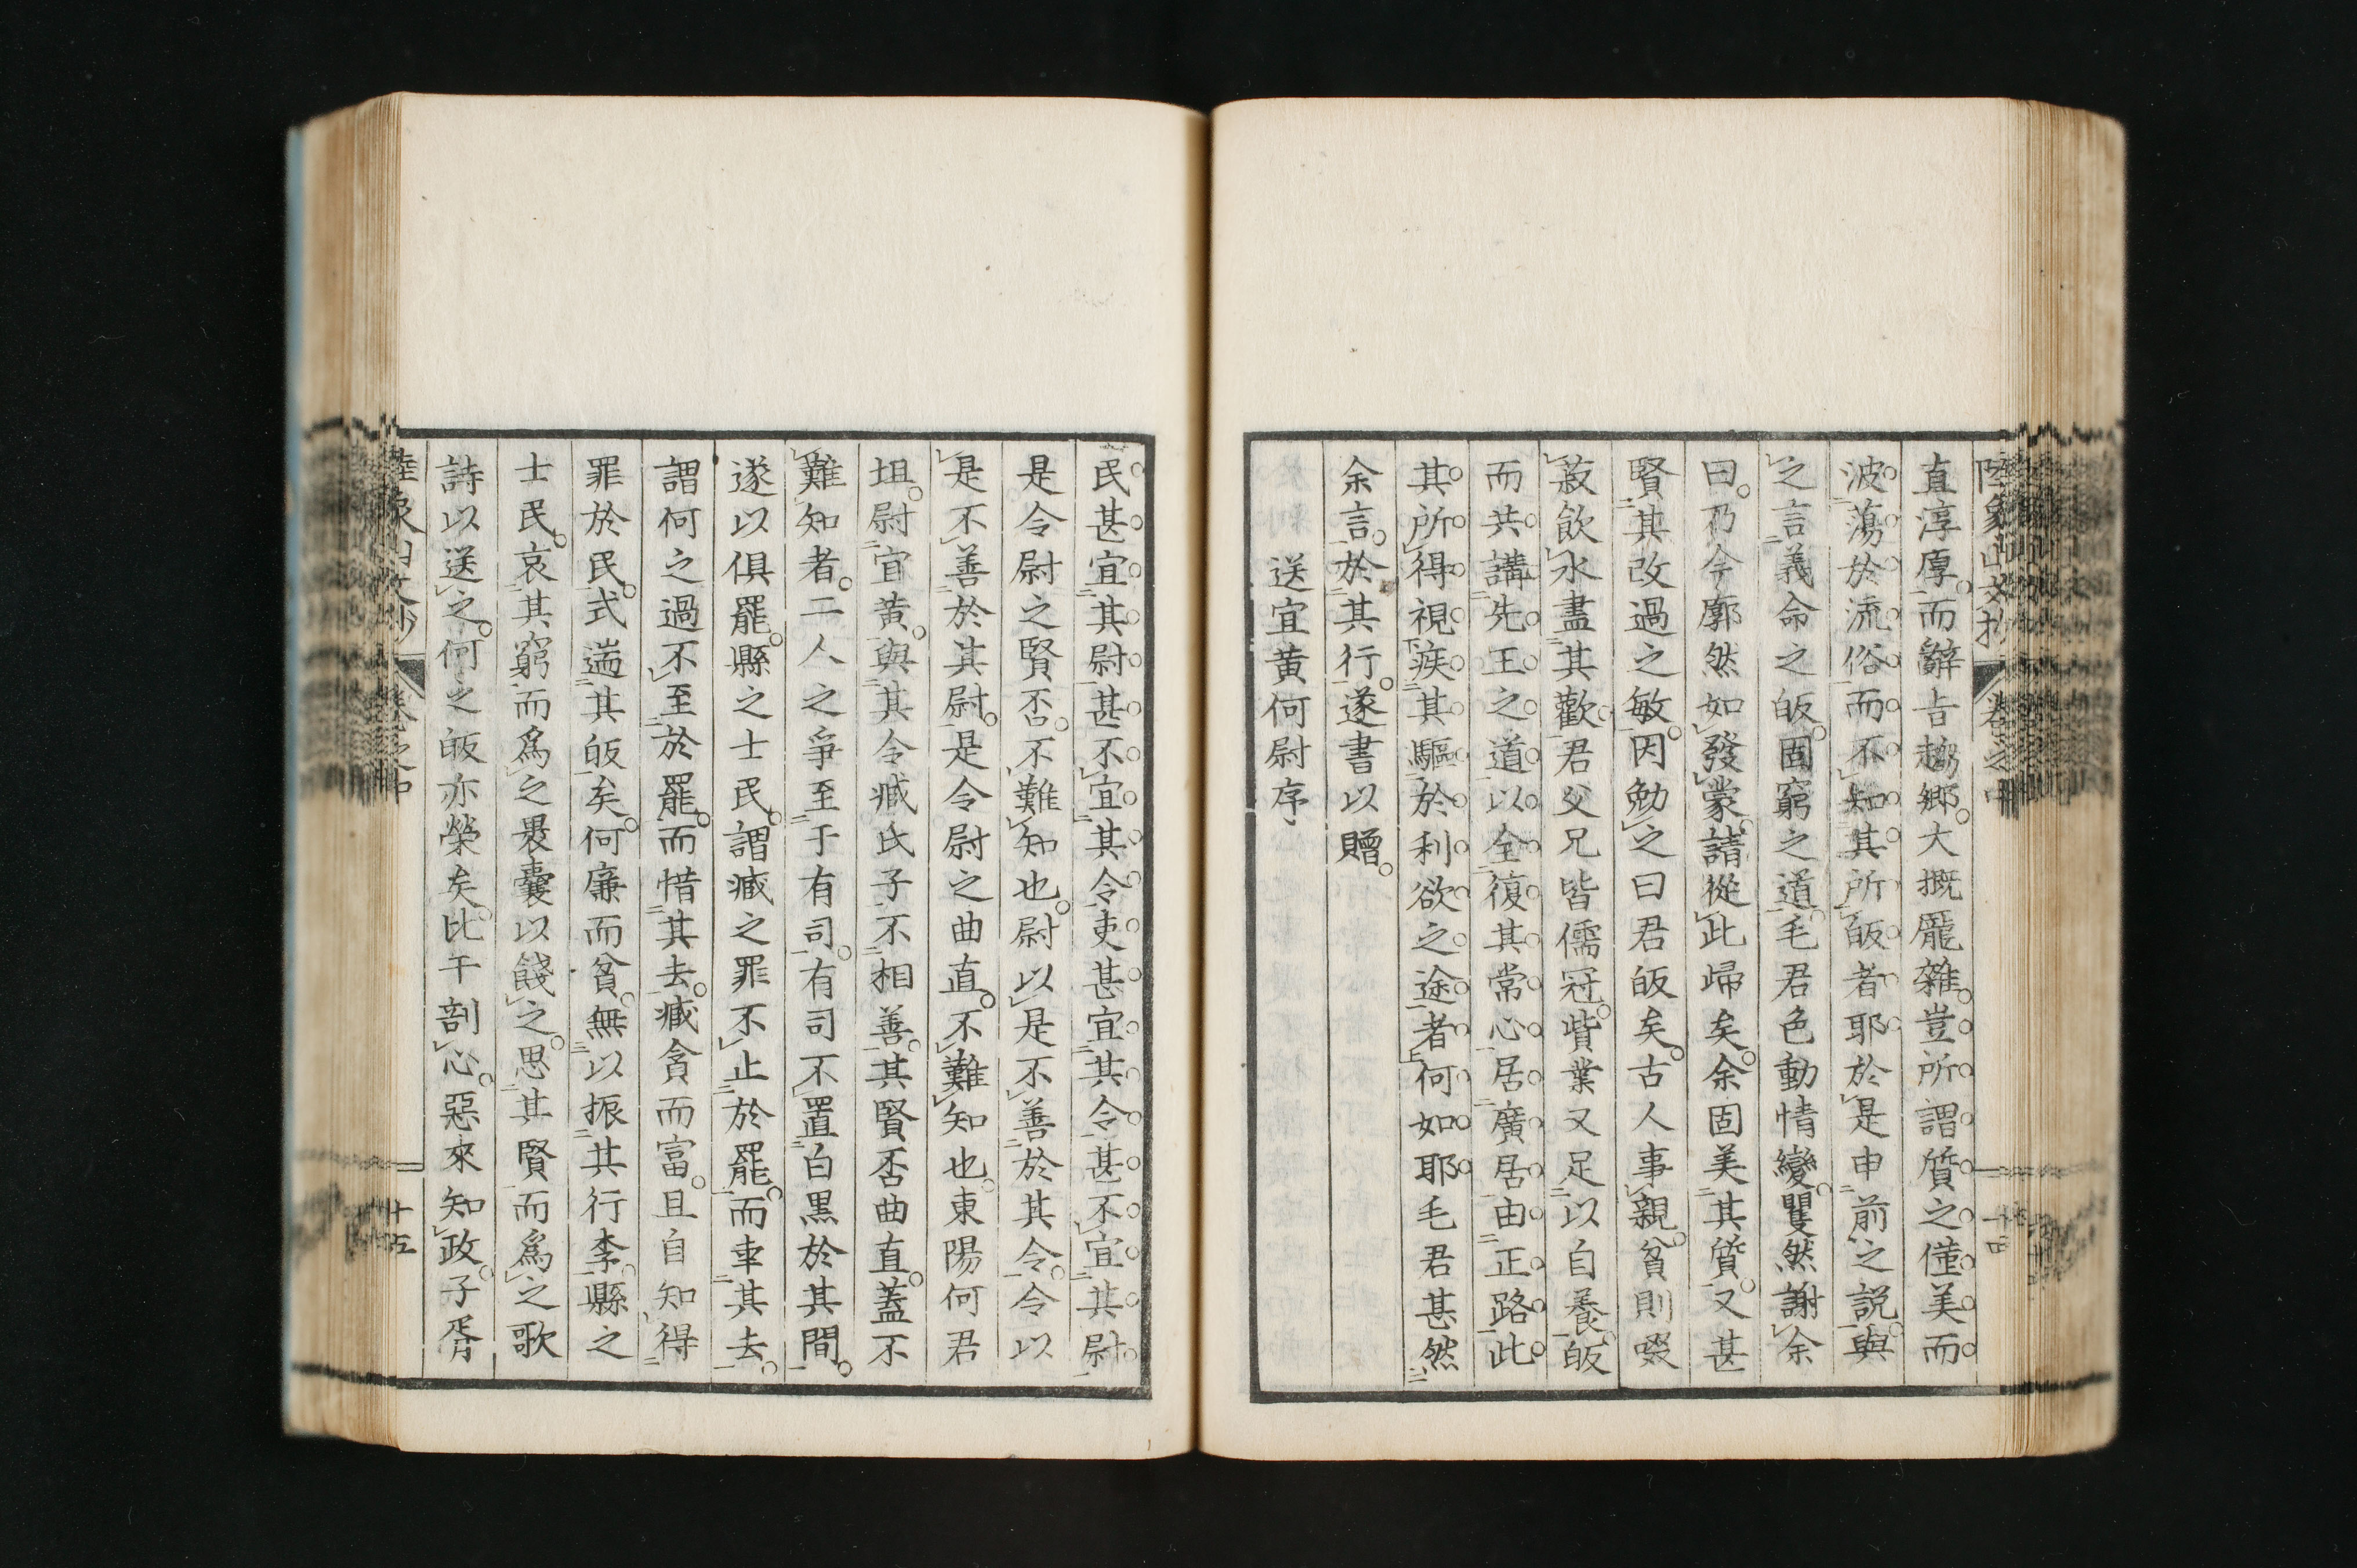 陸象山文抄 卷之中 十四
直淳厚。而辭吉趨鄉。大概厖雜。豈所謂質之僅美而
波蕩於流俗而不知其所皈者耶於是申前之說。與
之言義命之皈。固窮之道。毛君色動情變。矍然謝余
曰。乃今廓然如發蒙。請從此歸矣。余固美其質。又甚
賢其改過之敏。因勉之曰君皈矣。古人事親。貧則啜
菽飲水盡其歡。君父兄皆儒冠。貲業又足以自養。皈
而共講先王之道以全復其常心居廣居由正路此
其所得視疾其驅於利欲之途者何如耶毛君甚然
余言。於其行。遂書以贈。
送宜黄何尉序
民甚宜其尉甚不宜其令吏甚宜其令甚不宜其尉
是令尉之賢否。不難知也。尉以是不善於其令。令以
是不善於其尉。是令尉之曲直。不難知也。東陽何君
坦。尉宜黄。與其令臧氏子不相善。其賢否曲直。蓋不
難知者。二人之爭至于有司。有司不置白黒於其間。
遂以俱罷。縣之士民。謂臧之罪不止於罷。而幸其去。
謂何之過不至於罷。而惜其去。臧貪而富。且自知得
罪於民。式遄其皈矣。何廉而貧。無以振其行李。縣之
士民。哀其窮而爲之裹囊以餞之。思其賢而爲之歌
詩以送之。何之皈亦榮矣。比干剖心。惡來知政。子胥
陸象山文抄 卷之中 十五